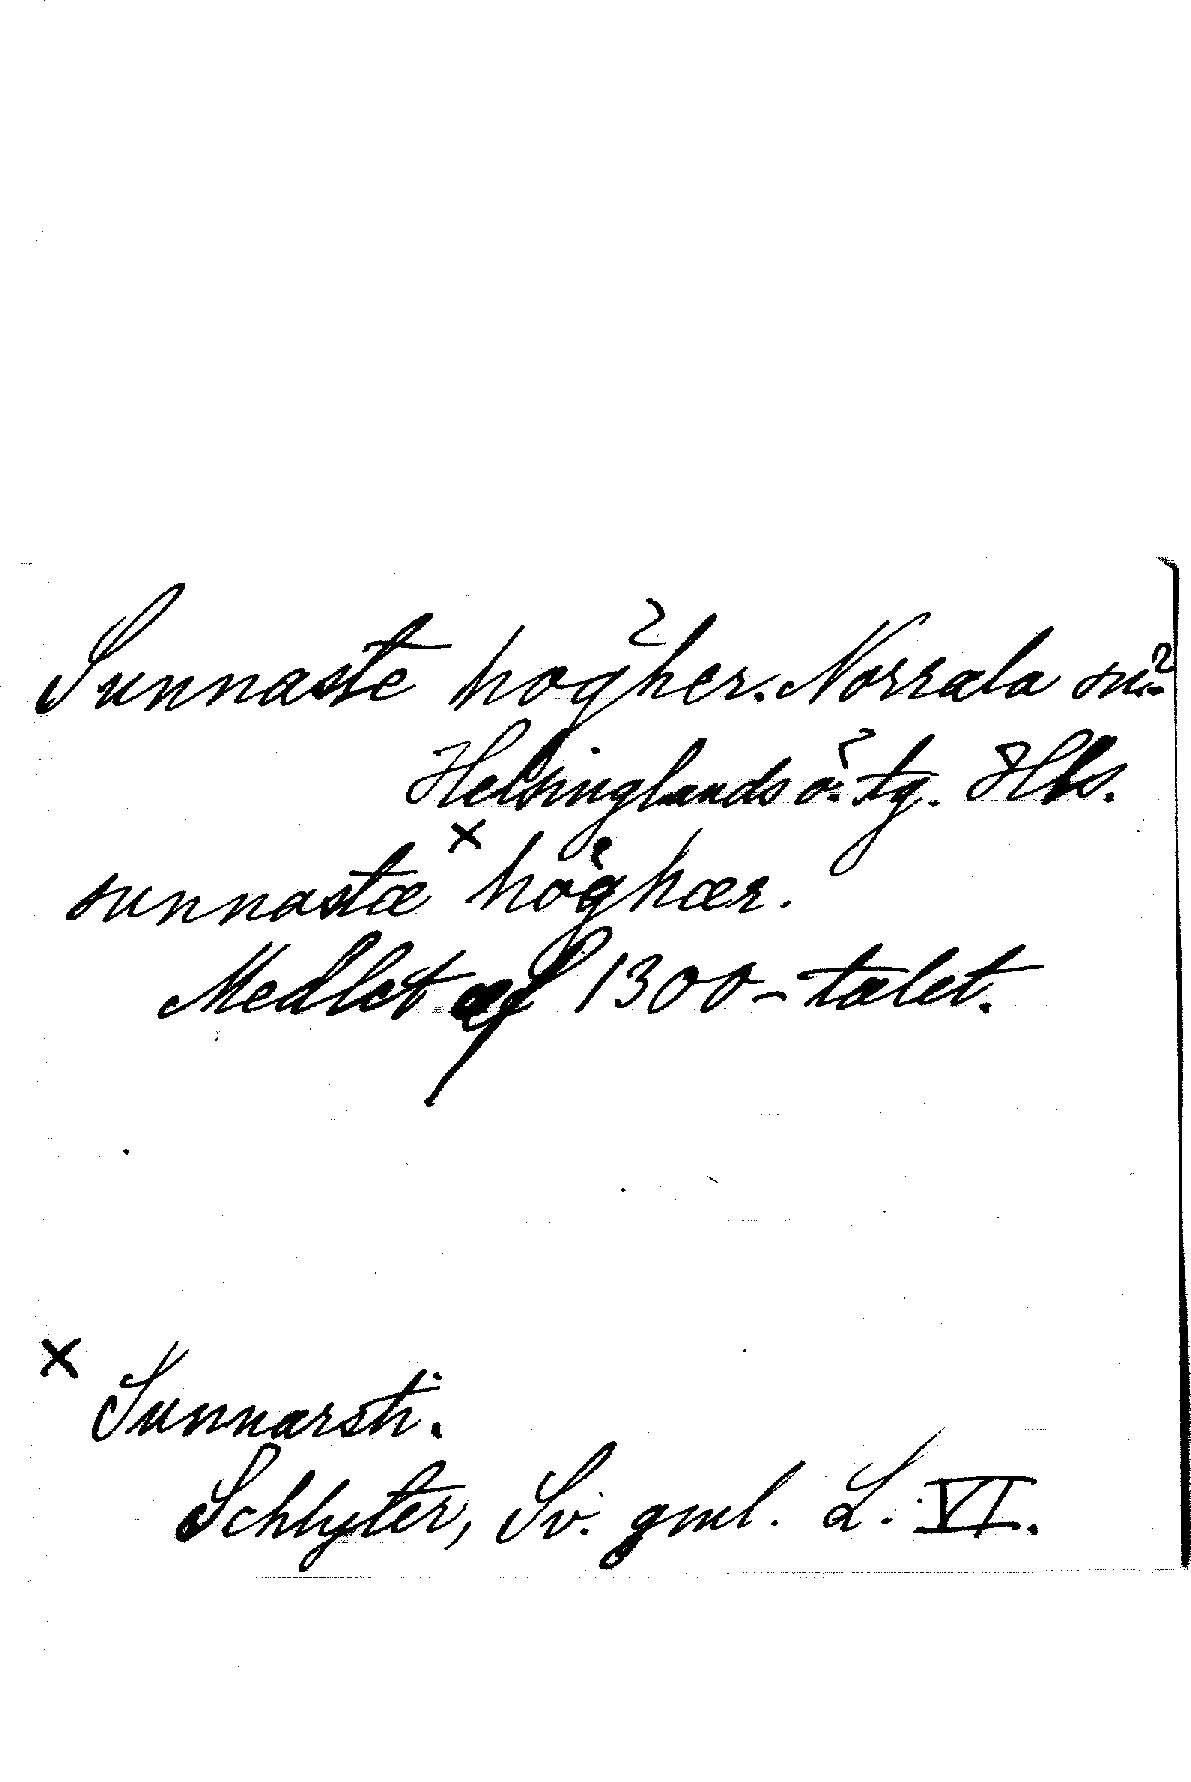 Sunnaste högher. Norrala sn?
Helsinglands ö. tg. Hls.
sunnastæ × höghær.
Medlet af 1300-talet.
× Sunnarsti.
Schlyter, Sv. gml. L. VI.